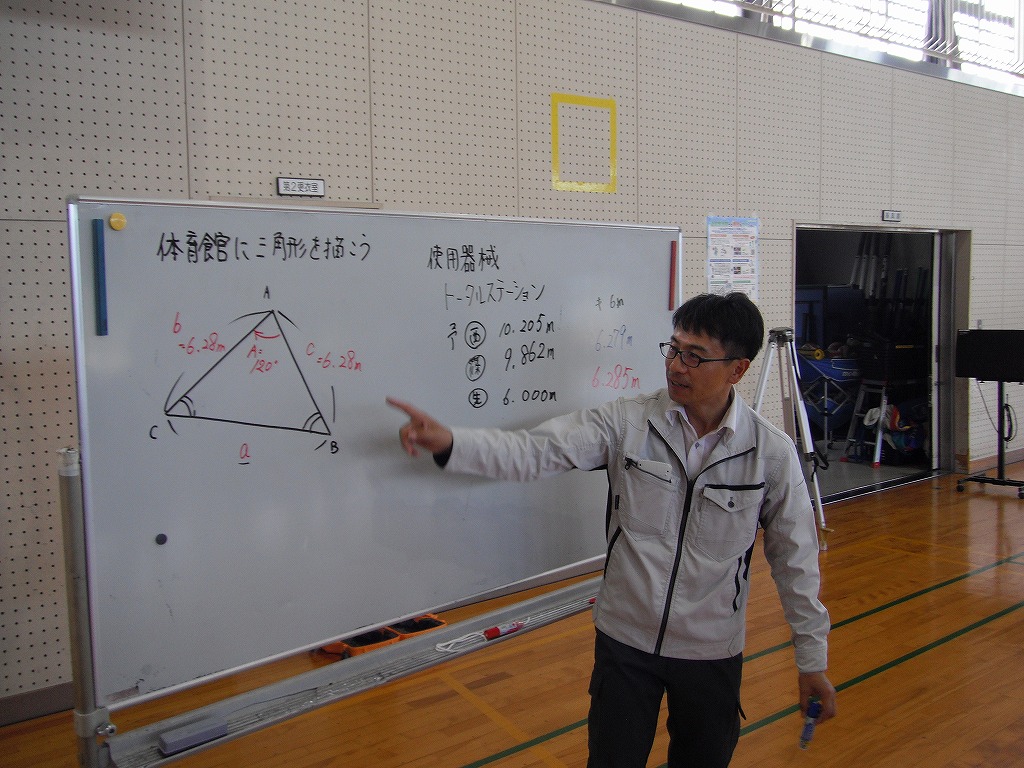 第2更衣室
体育館に三角形を描こう
A
b
=6.28m
A=
120°
C=6.28m
C
B
a
使用器械
トータルステーション
10.205m
9.862m
生 6.000m
6m
6.279m
6.285m